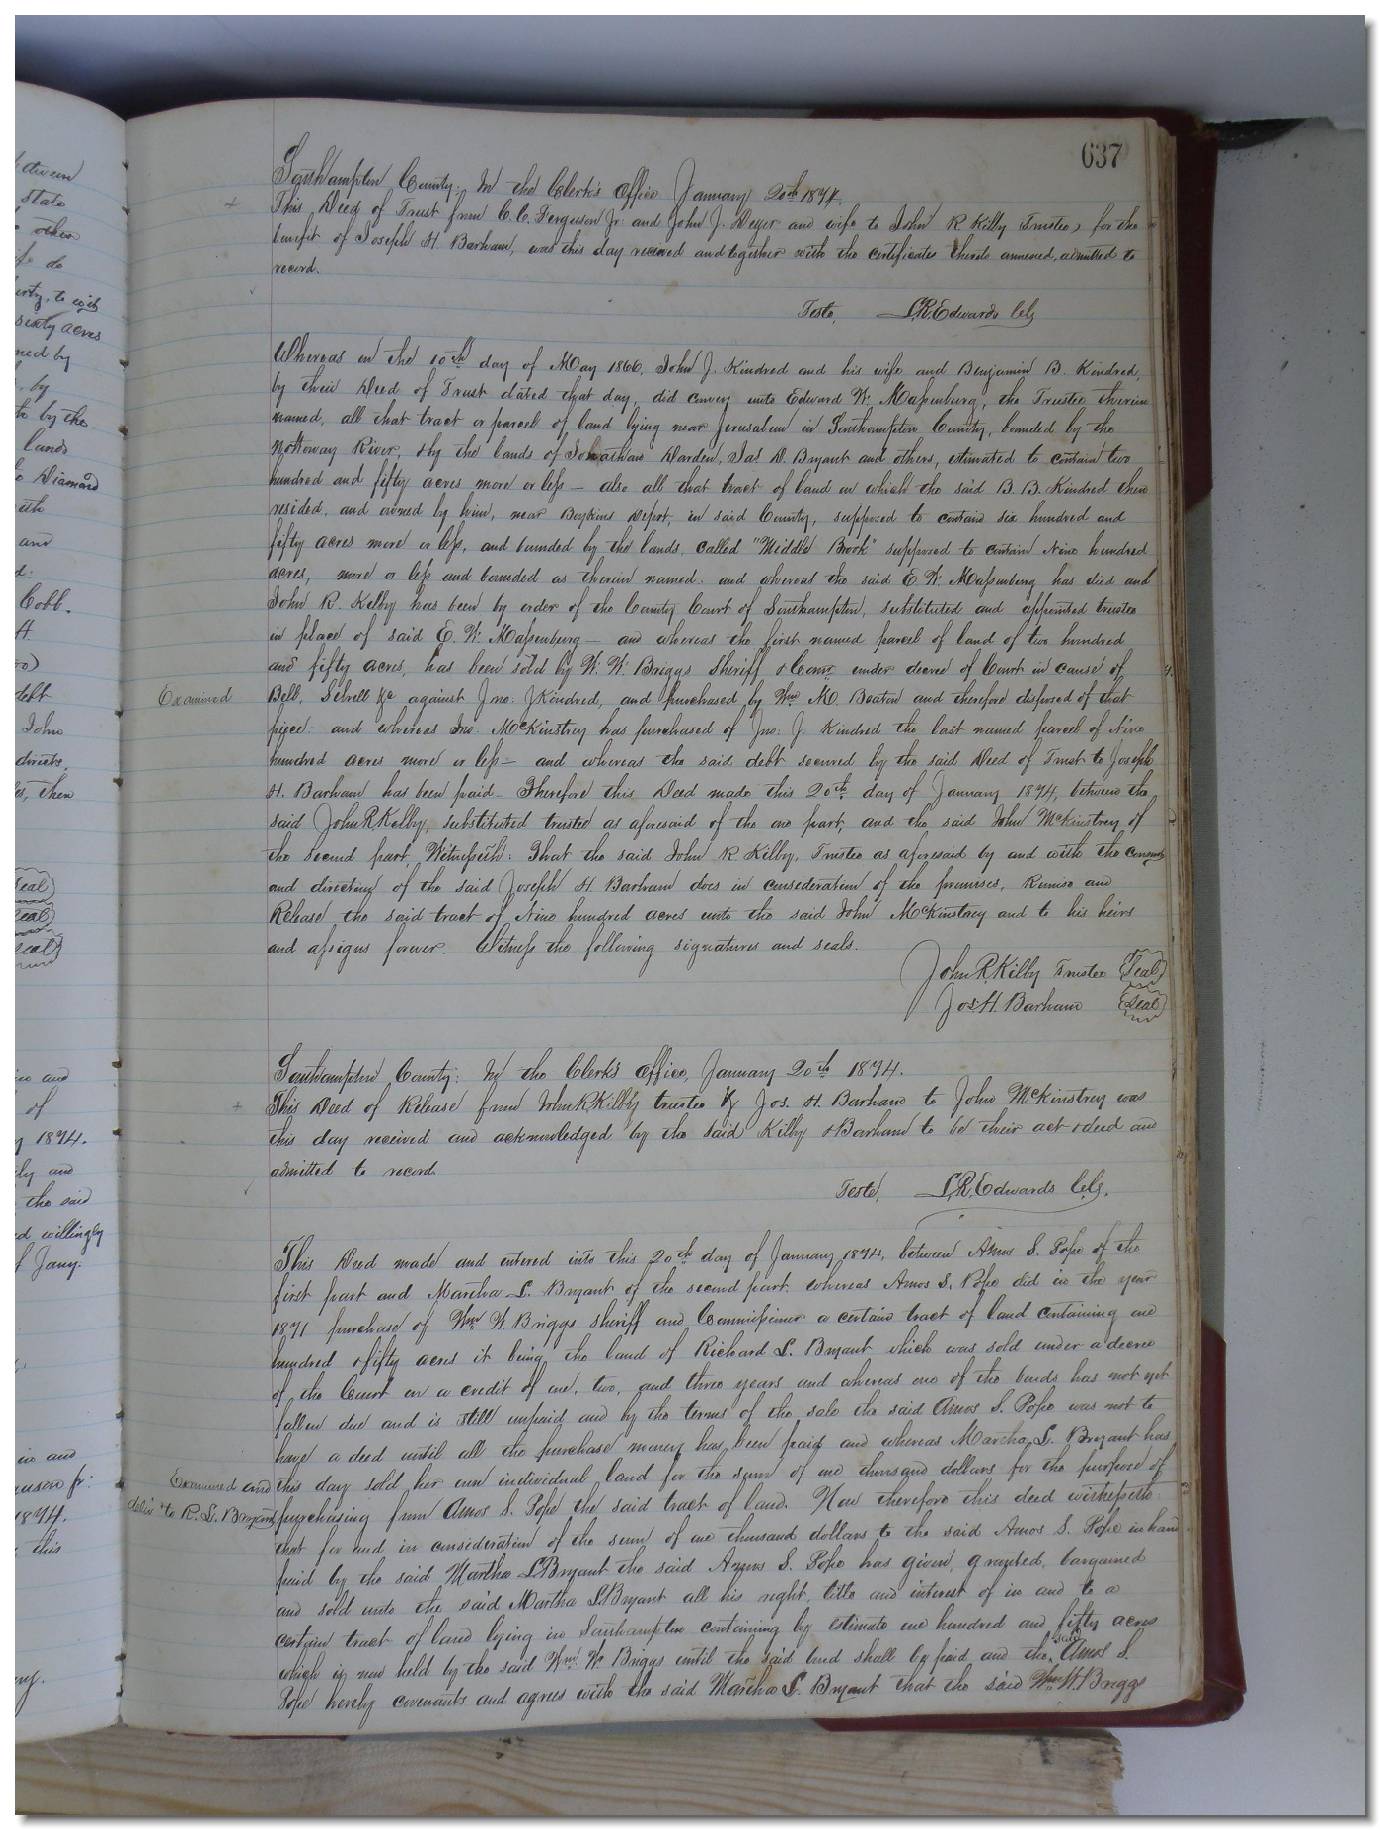 637
Southampton County: In the Clerk's Office January 20th 1874.
This Deed of Trust from C. C. Ferguson Jr: and John J. Deyer and wife to John R Kilby Trustee, for the
benefit of Joseph H. Barham, was this day received and together with the certificates thereto annexed, admitted to
record.
Teste, L. R. Edwards Clk
Whereas on the 10th day of May 1866, John J. Kindred and his wife and Benjamin B. Kindred,
by their Deed of Trust dated that day, did convey unto Edward W. Massenburg, the Trustee therein
named, all that tract or parcel of land lying near Jerusalem in Southampton County, bounded by the
Nottoway River, & by the lands of Jonathan Darden, Jas. D. Bryant and others, estimated to contain two
hundred and fifty acres more or less — also all that tract of land on which the said B. B. Kindred then
resided, and owned by him, near Boykins Depot, in said County, supposed to contain six hundred and
fifty acres more or less, and bounded by the lands, called "Middle Brook" supposed to contain Nine hundred
acres, more or less and bounded as therein named. and whereas the said E. W. Massenburg has died and
John R. Kilby has been by order of the County Court of Southampton, substituted and appointed trustee
in place of said E. W. Massenburg — and whereas the first named parcel of land of two hundred
and fifty acres, has been sold by W. W. Briggs Sheriff & Comr under decree of Court in cause of
Examined
Bell, &c against Jno: J Kindred, and purchased by Wm M. Beaton and therefore disposed of that
piece. and whereas Jno. McKinstrey has purchased of Jno: J. Kindred the last named parcel of Nine
hundred acres more or less — and whereas the said debt secured by the said Deed of Trust to Joseph
H. Barham has been paid — Therefore this Deed made this 20th day of January 1874, between the
said John R Kilby, substituted trustee as aforesaid of the one part, and the said John McKinstrey of
the second part, Witnesseth: That the said John R Kilby, Trustee as aforesaid by and with the consent
and direction of the said Joseph H. Barham does in consideration of the premises, Remise and
Release the said tract of Nine hundred acres unto the said John McKinstrey and to his heirs
and assigns forever. Witness the following signatures and seals.
John R. Kilby Trustee (Seal)
Jos. H. Barham (Seal)
Southampton County: In the Clerk's Office, January 20th 1874.
This Deed of Release from John R Kilby trustee & Jos. H. Barham to John McKinstrey was
this day received and acknowledged by the said Kilby & Barham to be their act & deed and
admitted to record
Teste, L. R. Edwards Clk.
This Deed made and entered into this 20th day of January 1874, between Amos S. Pope of the
first part and Martha L. Bryant of the second part. whereas Amos S. Pope did in the year
1871 purchase of Wm W Briggs sheriff and Commissioner a certain tract of land containing one
hundred & fifty acres it being the land of Richard L. Bryant which was sold under a decree
of the Court on a credit of one, two, and three years and whereas one of the bonds has not yet
fallen due and is still unpaid and by the terms of the sale the said Amos S. Pope was not to
have a deed until all the purchase money has been paid and whereas Martha L. Bryant has
Examined and
this day sold her own individual land for the sum of one thousand dollars for the purpose of
deliv'd to R. L. Bryant
purchasing from Amos S. Pope the said tract of land. Now therefore this deed witnesseth
that for and in consideration of the sum of one thousand dollars to the said Amos S. Pope in hand
paid by the said Martha L Bryant the said Amos S. Pope has given, granted, bargained
and sold unto the said Martha L Bryant all his right, title and interest of in and to a
certain tract of land lying in Southampton containing by estimate one hundred and fifty acres
which is now held by the said Wm W. Briggs until the said bond shall be paid and the said Amos S.
Pope hereby covenants and agrees with the said Martha L. Bryant that the said Wm W. Briggs